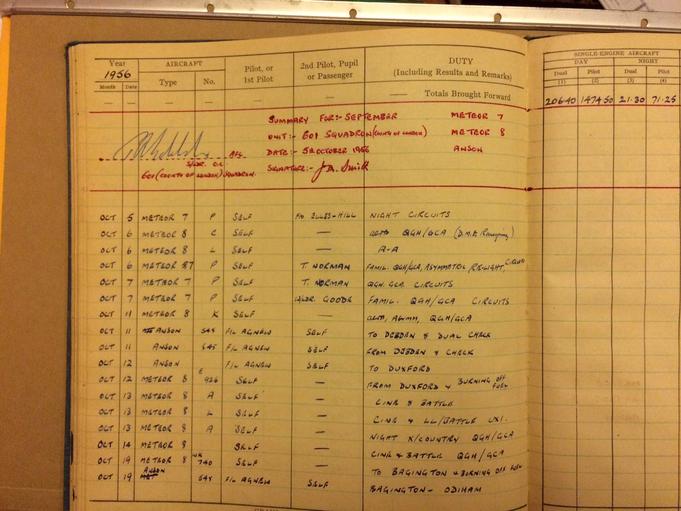 Year AIRCRAFT Pilot, or 1st Pilot 2nd Pilot, Pupil or Passenger DUTY (Including Results and Remarks) SINGLE-ENGINE AIRCRAFT
1956 DAY NIGHT
Month Date Type No. Dual Pilot Dual Pilot
(1) (2) (3) (4)
— — — — — — Totals Brought Forward
206.40 71.25
SUMMARY FOR:- SEPTEMBER METEOR 7
UNIT:- 601 SQUADRON (COUNTY OF LONDON) METEOR 8
DATE:- 5th OCTOBER 1956 ANSON
SIGNATURE:- J.A. Smith
601 (COUNTY OF LONDON) SQUADRON.
OCT 5 METEOR 7 P SELF NIGHT CIRCUITS
OCT 6 METEOR 8 C SELF — QGH/GCA
OCT 6 METEOR 8 L SELF — A-A
OCT 6 METEOR 7 P SELF T. NORMAN FAMIL. QGH/GCA, ASYMMETRIC
OCT 7 METEOR 7 P SELF T. NORMAN QGH GCA CIRCUITS
OCT 7 METEOR 7 P SELF FAMIL. QGH/GCA CIRCUITS
OCT 11 METEOR 8 K SELF — QGH/GCA
OCT 11 ANSON F/L AGNEW SELF TO DEBDEN & DUAL CHECK
OCT 11 ANSON F/L AGNEW SELF FROM DEBDEN & CHECK
OCT 12 ANSON F/L AGNEW SELF TO DUXFORD
OCT 12 METEOR 8 926 SELF — FROM DUXFORD & BURNING OFF FUEL
OCT 13 METEOR 8 A SELF — CINE & BATTLE
OCT 13 METEOR 8 L SELF — CINE & LL/BATTLE
OCT 13 METEOR 8 A SELF — NIGHT X/COUNTRY QGH/GCA
OCT 14 METEOR 8 SELF — CINE & BATTLE QGH/GCA
OCT 19 METEOR 8 740 SELF — TO BAGINGTON & BURNING OFF FUEL
OCT 19 ANSON F/L AGNEW SELF BAGINGTON - ODIHAM